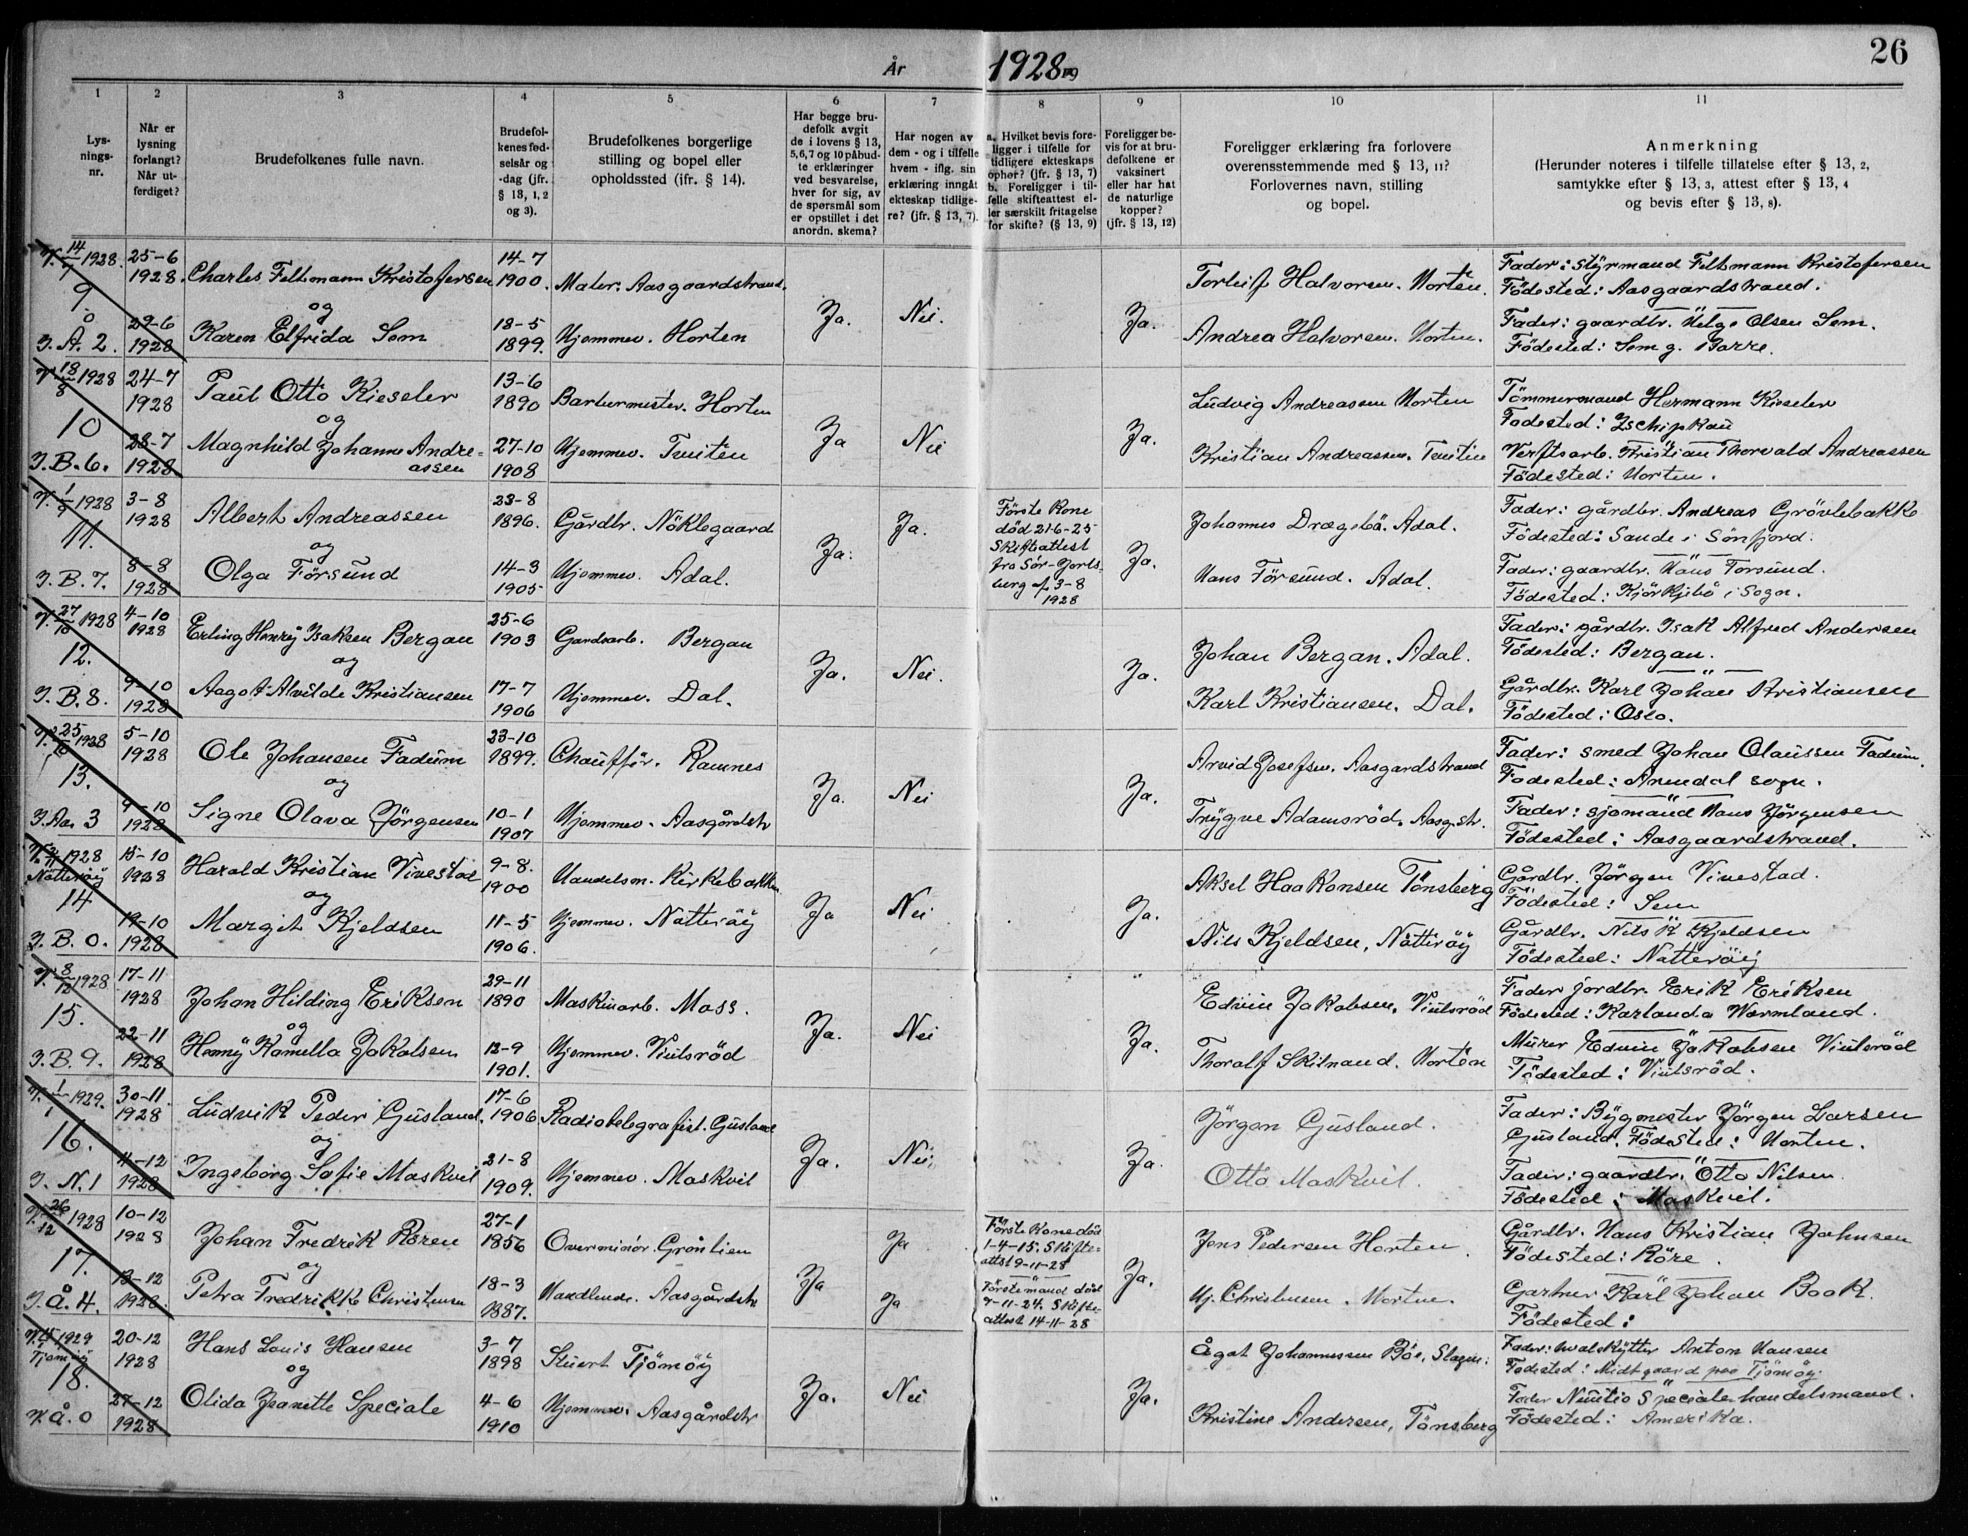 26
År 1928
1 2 3 4 5 6 7 8 9 10 11
Lys-
nings-
nr.
Når er
lysning
forlangt?
Når ut-
ferdiget?
Brudefolkenes fulle navn.
Brudefol-
kenes fød-
selsår og
-dag (jfr.
§ 13, 1, 2
og 3).
Brudefolkenes borgerlige
stilling og bopel eller
opholdssted (ifr. § 14).
Har begge bru-
defolk avgit
de i lovens § 13,
5,6,7 og 10 påbud-
te erklæringer
ved besvarelse,
hver for sig, av
de spørsmål som
er opstillet i det
anordn. skema?
Har nogen av
dem - og i tilfelle
hvem - iflg. sin
erklæring inngått
ekteskap tidlige-
re? (jfr. § 13, 7).
a. Hvilket bevis fore-
ligger i tilfelle for
tidligere ekteskaps
ophør? (jfr. § 13, 7)
b. Foreligger i til-
felle skifteattest el-
ler særskilt fritagelse
for skifte? (§ 13, 9)
Foreligger be-
vis for at bru-
defolkene er
vaksinert
eller har hat
de naturlige
kopper?
(jfr. § 13, 12)
Foreligger erklæring fra forlovere
overensstemmende med § 13, 11?
Forlovernes navn, stilling
og bopel.
Anmerkning
(Herunder noteres i tilfelle tillatelse efter § 13, 2,
samtykke efter § 13, 3, attest efter § 13, 4
og bevis efter § 13, 8).
V. 14/7 1928.
9.
J. Å. 2.
25-6
1928.
29-6
1928
Charles Feltmann Kristofersen
og
Karen Elfrida Sem
14-7
1900.
18-5
1899.
Maler. Aasgaardstrand.
Hjemmev. Horten
Ja.
Nei.
Ja.
Torleif Halvorsen. Horten.
Andrea Halvorsen. Horten.
Fader: Styrmand Feltmann Kristofersen
Födested: Aasgaardstrand.
Fader: gaardbr. Helge Olsen Sem.
Födested: Sem g. Borre.
V. 18/8 1928
10
J. B. 6.
24-7
1928
28-7
1928
Paul Otto Kieseler
og
Magnhild Johanne Andre=
assen
13-6
1890
27-10
1908
Barbermester. Horten
Hjemmev. Tveiten
Ja
Nei
Ja.
Ludvig Andreassen Horten
Kristian Andreassen. Tveiten
Tömmermand Hermann Kieseler
Födested: Zschipkau
Verftsarb. Kristian Thorvald Andreassen
Födested: Horten.
V. 1/9 1928
11.
J. B. 7.
3-8
1928
8-8
1928
Albert Andreassen
og
Olga Försund
23-8
1896.
14-3
1905
Gårdbr. Nöklegaard
Hjemmev. Adal.
Ja.
Ja.
Förste Kone
död 21-6-25
Skifteattest
fra Sör-Jarls-
berg af 3-8
1928
Ja.
Johannes Dragebö. Adal.
Hans Försund. Adal.
Fader: gårdbr. Andreas Grövlebakke
Födested: Sande i Sönfjord.
Fader: gaardbr. Hans Forsund.
Födested: Kjörkjebö i Sogn.
V. 27/10 1928
12.
J. B. 8.
4-10
1928
9-10
1928
Erling Henry Isaksen Bergan
og
Aagot Alvilde Kristiansen
25-6
1903
17-7
1906
Gardsarb. Bergan
Hjemmev. Dal.
Ja.
Nei.
Ja.
Johan Bergan. Adal.
Karl Kristiansen. Dal.
Fader: gårdbr. Isak Alfred Andersen
Födested: Bergan.
Gårdbr. Karl Johan Kristiansen
Födested: Oslo.
V. 25/10 1928
13.
J. Aa. 3
5-10
1928
9-10
1928
Ole Johansen Fadum
og
Signe Olava Jörgensen
23-10
1899.
10-1
1907
Chaufför. Ramnes
Hjemmev. Aasgårdstr
Ja.
Nei
Ja.
Arvid Josefsen. Aasgardstrand
Trygve Adamsröd. Aasg.str.
Fader: smed Johan Olaussen Fadum.
Födested: Arendal sogn.
Fader: sjomand Hans Jörgensen
Födested: Aasgaardstrand.
1928
Nötteröy
14
J. B. 0.
15-10
1928
19-10
1928
Harald Kristian Vivestad
og
Margit Kjeldsen
9-8.
1900
11-5
1906.
Handelsm. Kirkebakken
Hjemmev. Nötteröy
Ja
Nei
Ja.
Aksel Haakonsen Tönsberg
Nils Kjeldsen, Nötteröy
Gårdbr. Jörgen Vivestad.
Födested: Sem
Gårdbr. Nils K Kjeldsen
Födested: Nötteröy
V. 8/12 1928
15.
J. B. 9.
17-11
1928
22-11
1928
Johan Hilding Eriksen
og
Henny Kamilla Jakobsen
29-11
1890
12-9
1901.
Maskinarb. Moss.
Hjemmev. Viulsröd
Ja.
Nei
Ja.
Edvin Jakobsen, Viulsröd
Thoralf Skilnand. Horten
Fader jordbr. Erik Eriksen
Födested: Karlanda Wermland.
Murer Edvin Jakobsen Viulsröd
Födested: Viulsröd.
V. 1/1 1929.
16.
J. N. 1
30-11
1928
4-12
1928
Ludvik Peder Gusland.
og
Ingeborg Sofie Maskvil
17-6
1906
21-8
1909.
Radiotelegrafist. Gusland
Hjemmev. Maskvil
Ja.
Nei.
Ja.
Jörgen Gusland.
Otto Maskvil.
Fader: Bygmester Jörgen Larsen
Gusland. Födested: Horten.
Fader: gaardbr. Otto Nilsen
Födested: Maskvil.
V. 26/12 1928
17.
J. Å. 4.
10-12
1928
13-12
1928.
Johan Fredrik Rören
og
Petra Fredrikke Christensen
27-1
1856
18-3
1887.
Overminör. Grönlien
Handlende. Aasgårdstr
Ja
Ja
Ja
Förste Kone död
1-4-15. Skifte=
attst 9-11-28
Förstemand död
9-11-24. Skifte-
attest 14-11-28
Ja.
Jens Pedersen Horten.
Hj. Christensen. Horten.
Gårdbr. Hans Kristian Johnsen
Födested: Röre.
Gartner Karl Johan Book.
Födested:
1929
Tjömöy
18.
J. Å. 0
20-12
1928
27-12
1928
Hans Louis Hansen
og
Olida Jeanette Speciale
3-7
1898
4-6
1910
Stuert Tjömöy
Hjemmev. Aasgårdstr
Ja.
Nei
Ja.
Ågot Johannessen Böe, Slagen.
Kristine Andersen, Tönsberg
Fader: hvalskytter Anton Hansen
Födested: Midtgaard paa Tjömöy.
Fader Nuntio Speciale handelsmand.
Födested: Amerika.